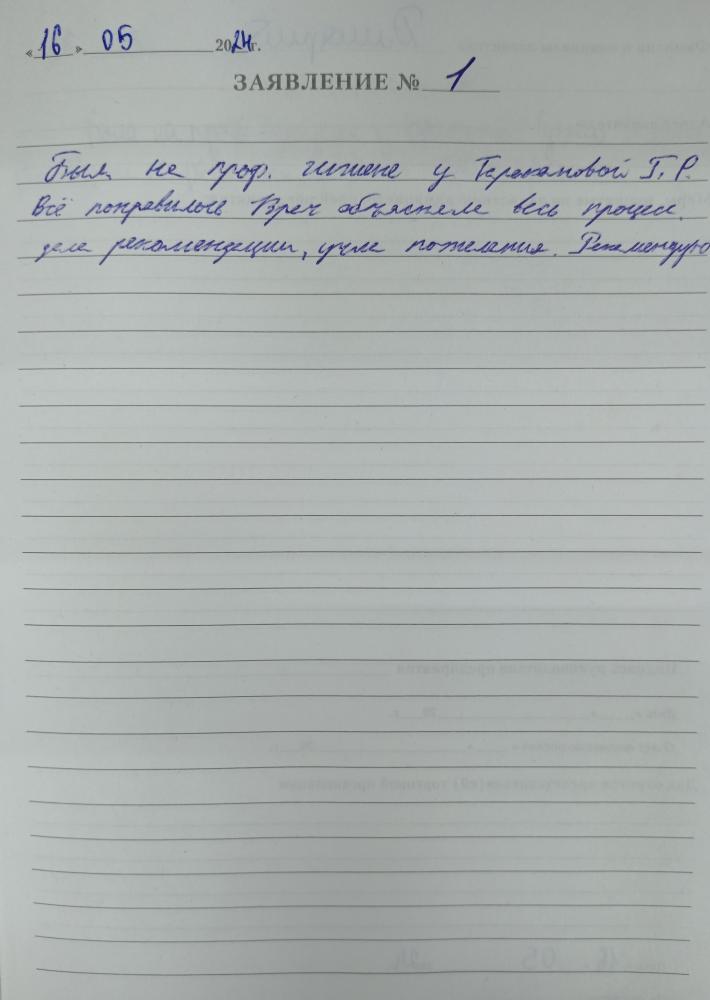 «16» 05 2024г.
ЗАЯВЛЕНИЕ № 1
Был на проф. гигиене у Таракановой Г. Р.
Всё понравилось Врач объяснила весь процесс.
дала рекомендации, учла пожелания. Рекомендую